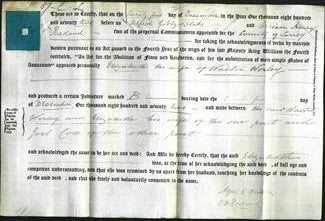 These are to Certify, that on the day of December in the Year One thousand eight hundred
and seventy before
two of the perpetual Commissioners appointed for the County of Surrey
for taking the acknowledgments of deeds by married
women pursuant to an Act passed in the Fourth Year of the reign of his late Majesty King William the
Fourth, intituled "An Act for the Abolition of Fines and Recoveries, and for the substitution of more simple Modes of
Assurance" appeared personally Elizabeth the wife of Walter Worley
and produced a certain Indenture marked B bearing date the day
of December One thousand eight hundred and seventy and made between the said Walter
Worley and Elizabeth his wife of the one part and
of the other part
and acknowledged the same to be her act and deed: And We do hereby Certify, that the said Elizabeth
Worley was, at the time of her acknowledging the said deed, of full age and
competent understanding, and that she was examined by us apart from her husband, touching her knowledge of the contents
of the said deed, and that she freely and voluntarily consented to the same.